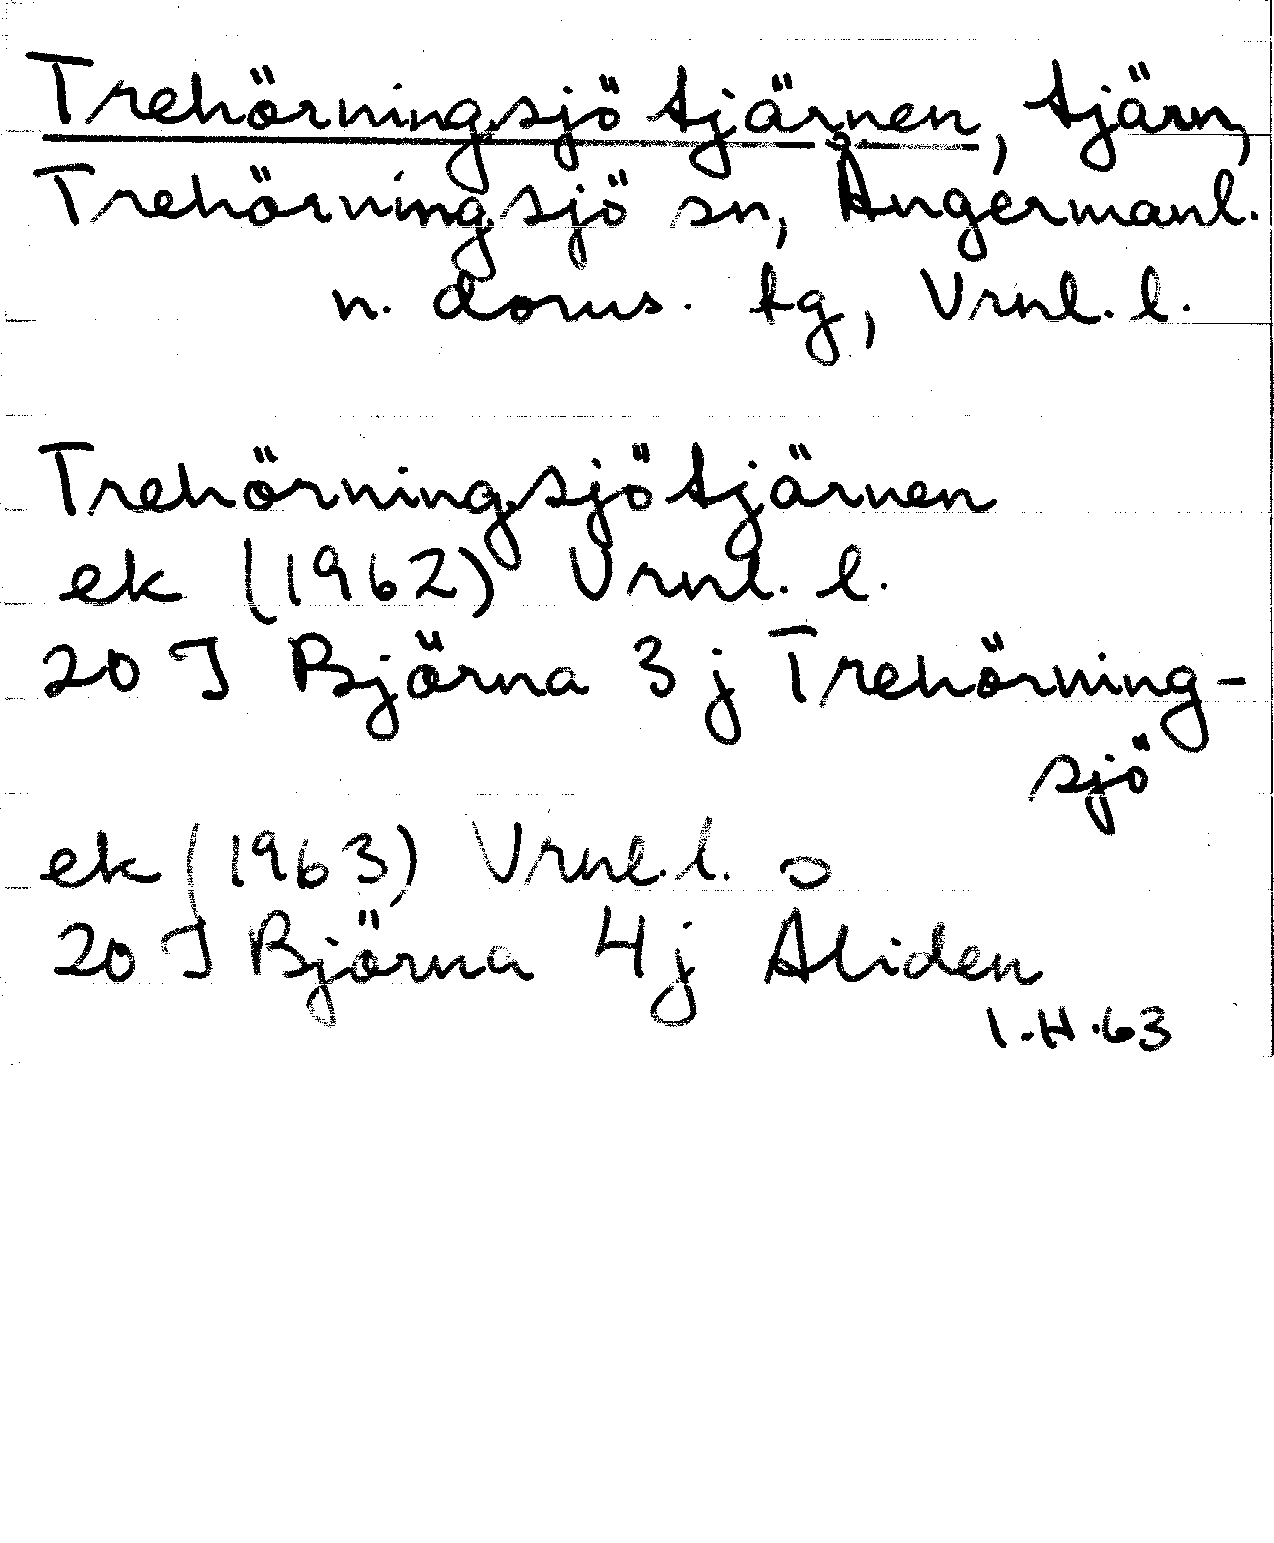 Trehörningsjötjärnen, tjärn,
Trehörningsjö sn, Ångermanl.
n. doms. tg, Vrnl. l.
Trehörningsjötjärnen
ek (1962) Vrnl. l.
20 J Björna 3 j Trehörning-
sjö
ek (1963) Vrnl. l.
20 J Björna 4 j Åliden
I.H. 63